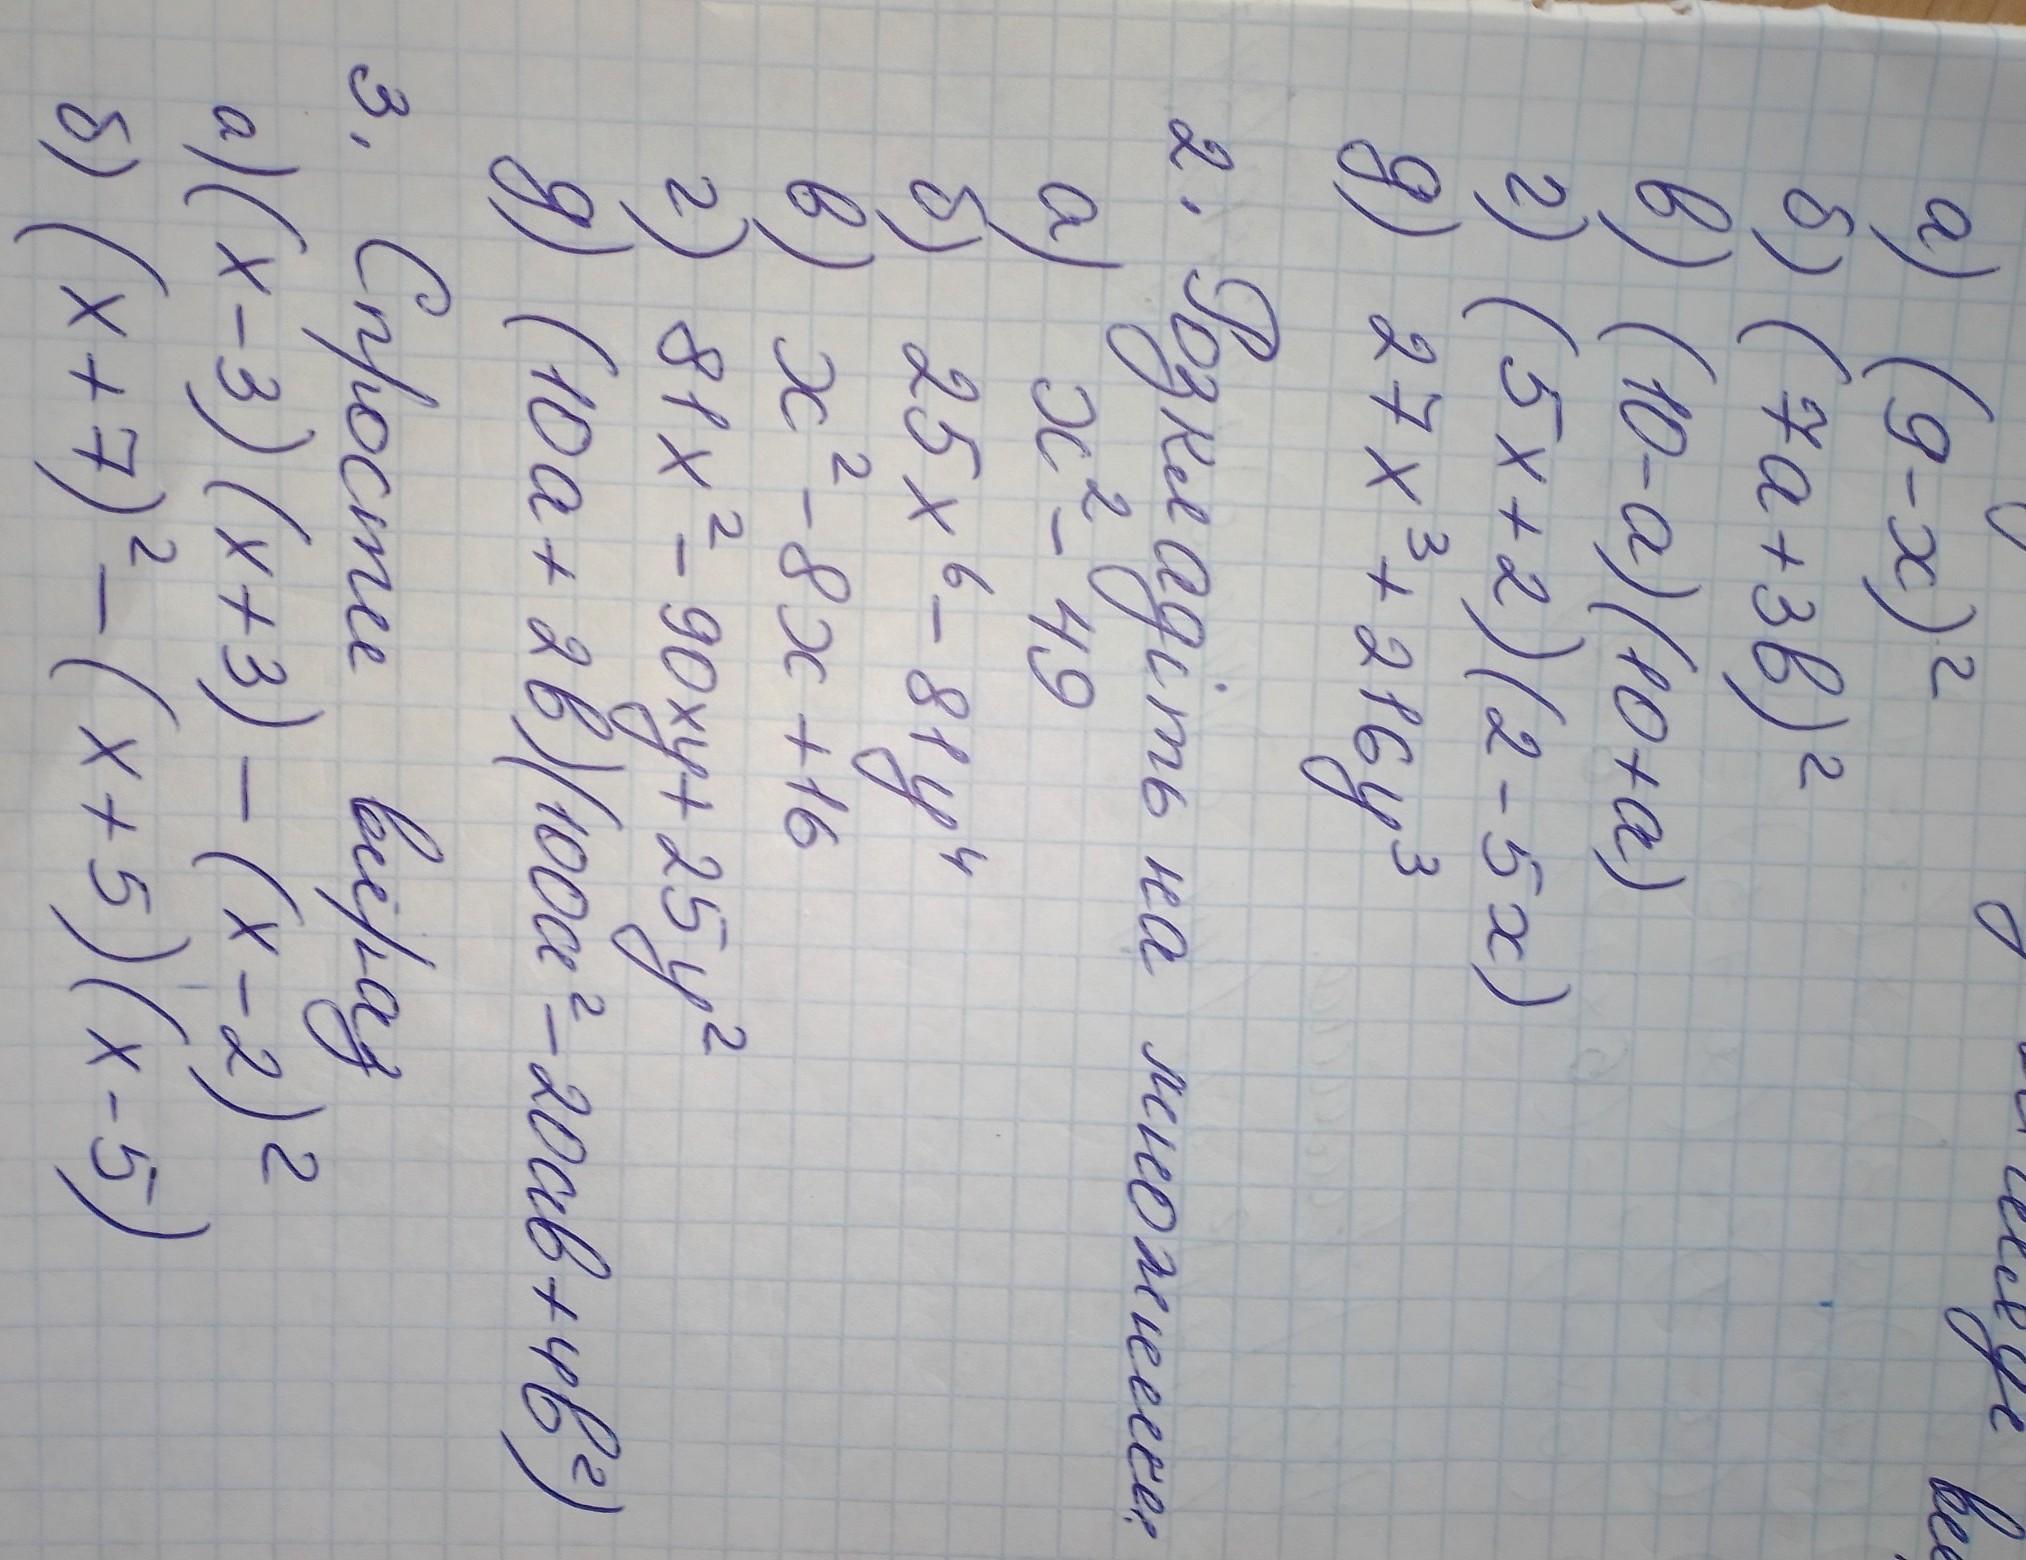 а) (9-x)²
б) (7a+3b)²
в) (10-a)(10+a)
г) (5x+2)(2-5x)
д) 27x³+216y³
2. Розкладіть на множники
а) x²-49
б) 25x⁶-81y⁴
в) x²-8x+16
г) 81x²-90xy+25y²
д) (10a+2b)(100a²-20ab+4b²)
3. Спростіть вираз
а) (x-3)(x+3)-(x-2)²
б) (x+7)²-(x+5)(x-5)